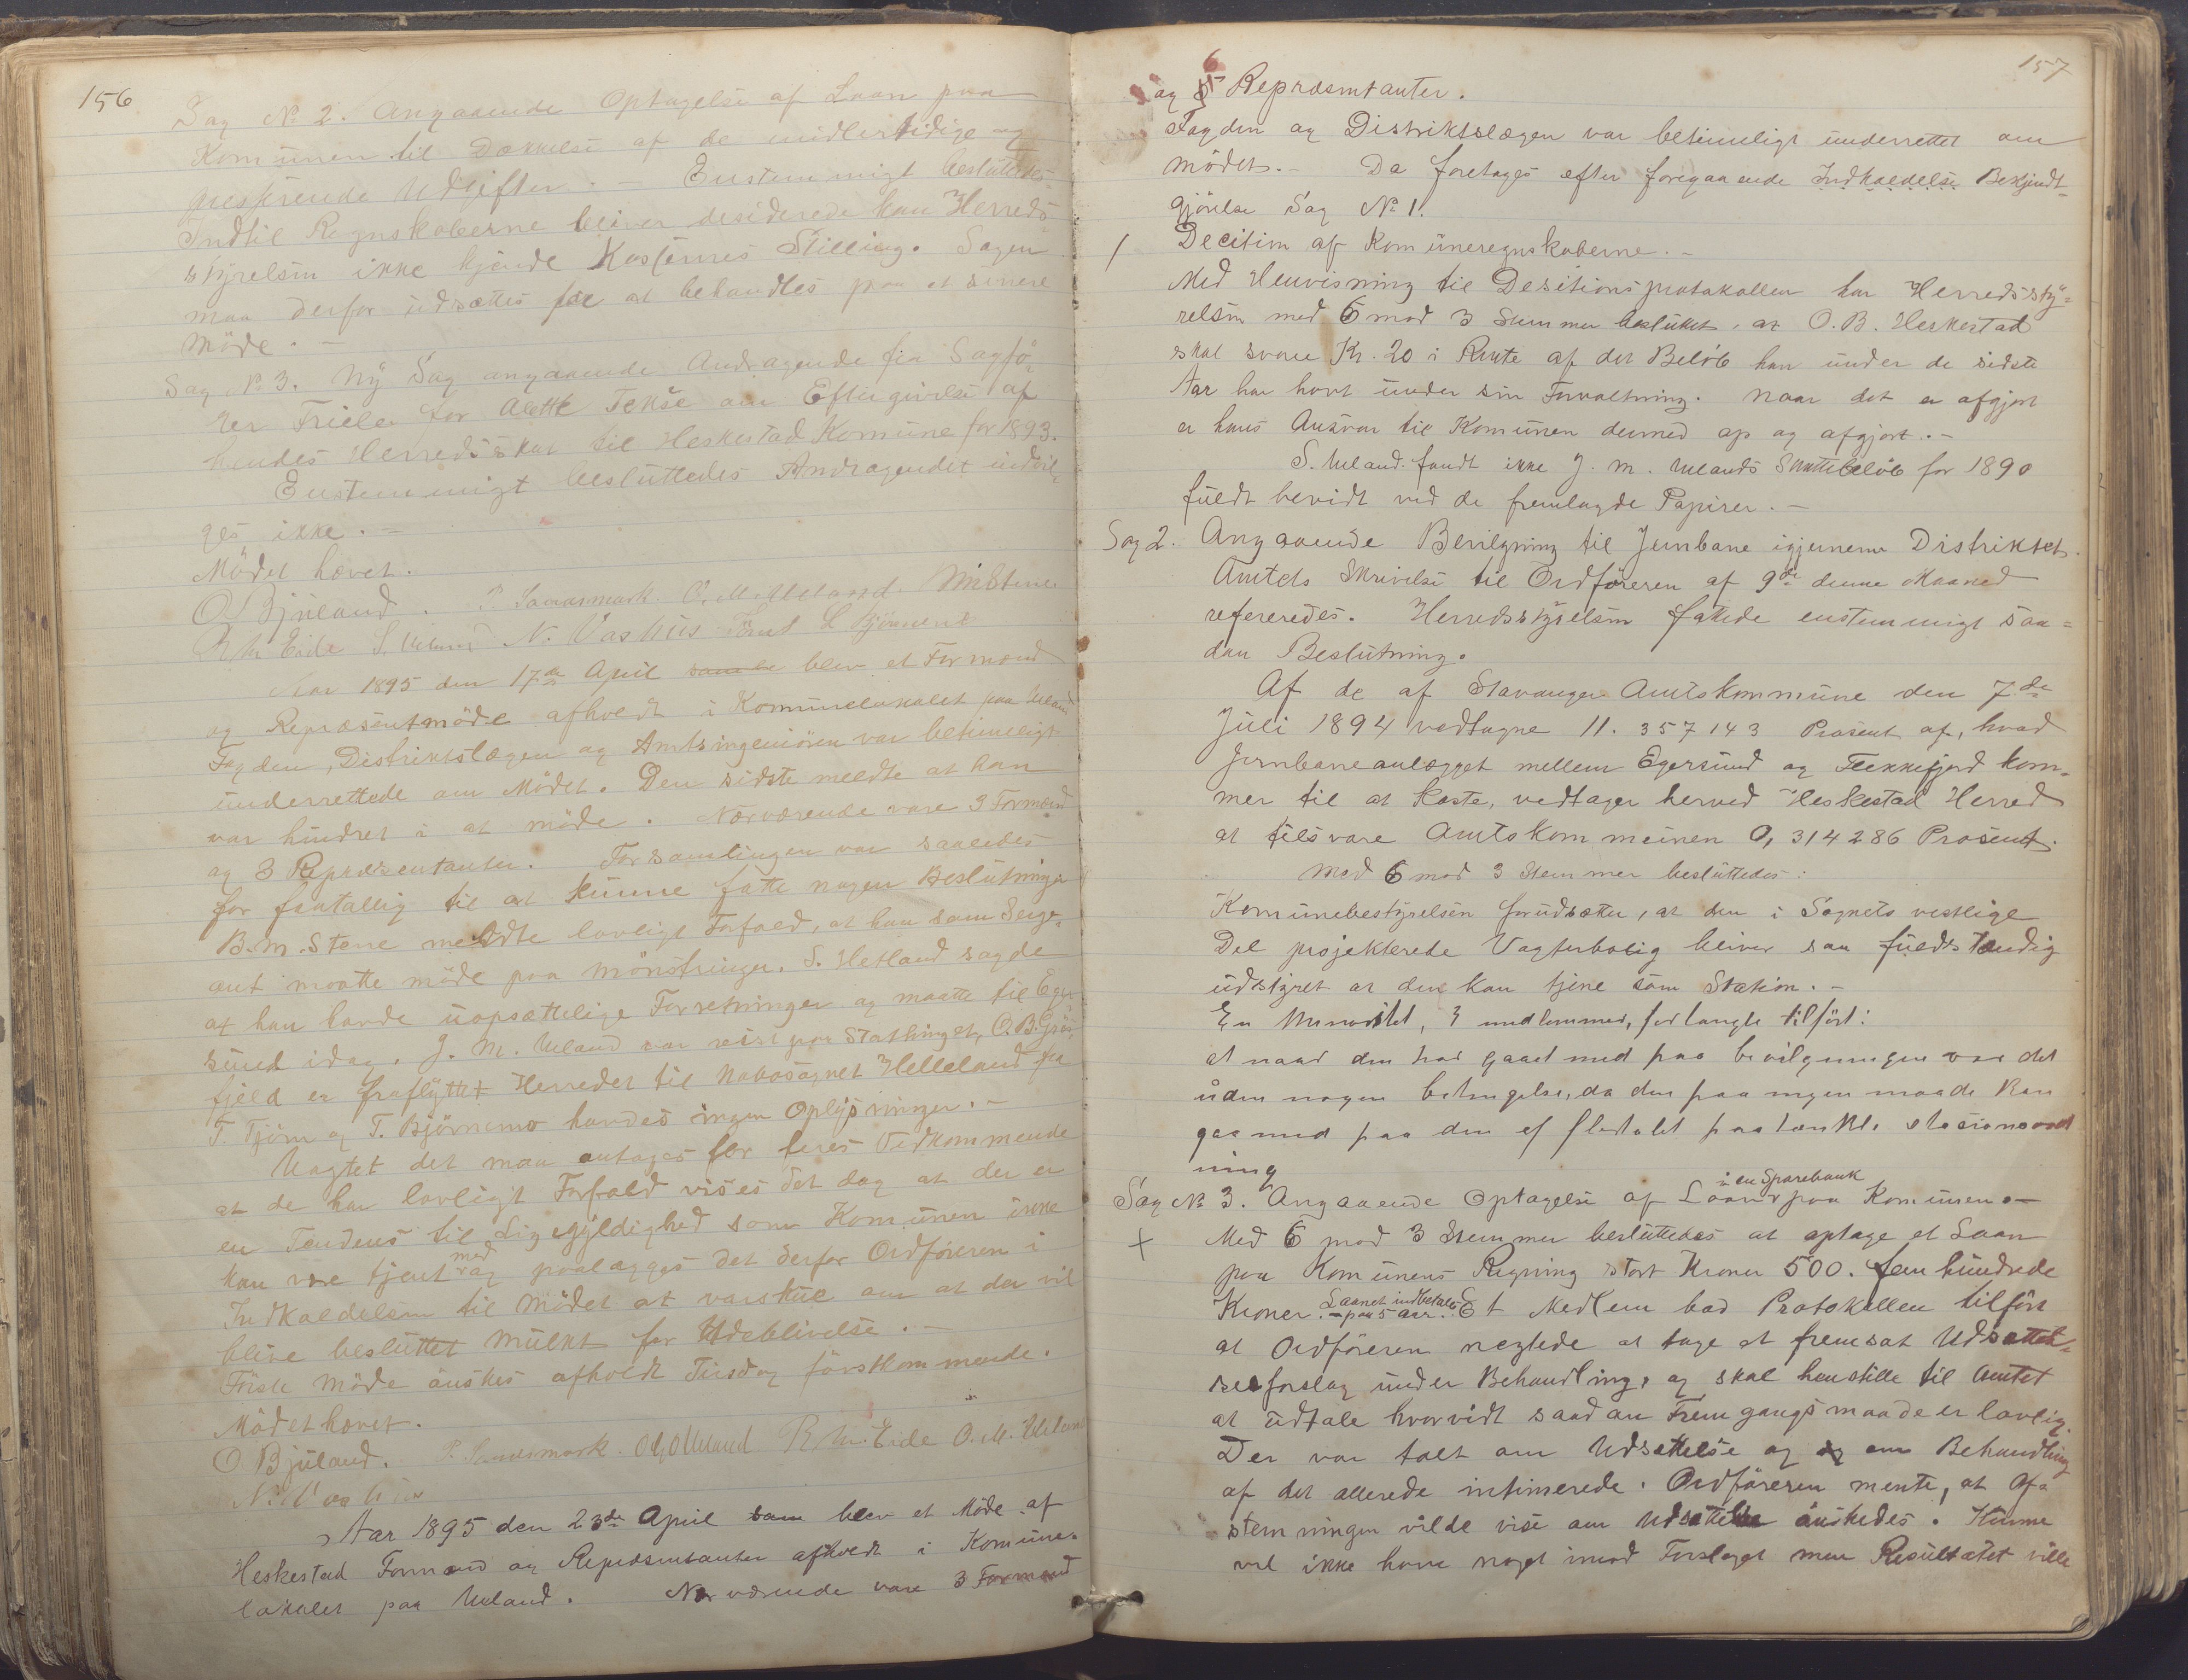 156
Sag No 2. Angaaende Optagelse af Laan paa
Komunen til Dækkelse af de midlertidige og
presserende Udgifter. – Enstemmigt besluttedes
Indtil Regnskaberne bliver desiderede kan Herreds-
styrelsen ikke kjende Kassernes Stilling. Sagen
maa derfor udsættes for at behandles paa et senere
Møde. –
Sag No 3. Ny Sag angaaende Andragende fra Sagfø-
rer Friele for Alette Tekse om Eftergivelse af
hendes Herredsskat til Heskestad Komune for 1893.
Enstemmigt besluttedes Andragendet indvil-
ges ikke. –
Mødet hævet.
O Bjuland. P. Sandsmark. O. M. Ueland.
R M Eide S. Ueland N. Vashus
Aar 1895 den 17de April samle blev et Formænd
og Repræsentmøde afholdt i Komunelokalet paa Ueland
Fogden, Distriktslægen og Amtsingeniøren var betimeligt
underrettede om Mødet. Den sidste meldte at han
var hindret i at møde. Nærværende vare 3 Formænd
og 3 Repræsentanter. Forsamlingen var saaledes
for faatallig til at kunne fatte nogen Beslutninger
B. M. Stene meldte lovligt Forfald, at han som Serge-
ant maatte møde paa Mønstringer. S. Hetland sagde
at han havde uopsættelige Forretninger og maatte til Eger-
sund idag. J. M. Ueland var reist paa Stathinget, O. B. Grøs-
fjeld er fraflyttet Herredet til Nabosagnet Helleland fra
T. Tjørn og T. Bjørnemo havdes ingen Oplysninger. –
Uagtet det maa antages for deres Vedkommende
at de har lovligt Forfald vises det dog at der er
en Tendens til Ligegyldighed som Komunen ikke
med
kan være tjent og paalægges det derfor Ordføreren i
Indkaldelsen til Mødet at varskue om at der vil
blive besluttet Mulkt for Udeblivelse. –
Første Møde ønskes afholdt Tirsdag førstkommende.
Mødet hævet.
O Bjuland. P. Sandsmark. O G Ueland R M. Eide O. M. Ueland
N. Vashus
Aar 1895 den 23de April sam blev et Møde af
Heskestad Formænd og Repræsentanter afholdt i Komune-
lokalet paa Ueland. Nærværende vare 3 Formænd
157
6
og 5 Repræsentanter.
Fogden og Distriktslægen var betimeligt underrettet om
mødet. – Da foretages efter foregaaende Indkaldelse Bekjendt-
gjørelse Sag No 1.
/ Decition af Komuneregnskaberne. –
Med Henvisning til Desitionsprotokollen har Herredssty-
relsen med 6 mod 3 Stemmer besluttet, at O. B. Heskestad
skal svare Kr. 20 i Rente af det Beløb han under de sidste
Aar har havt under sin Forvaltning. Naar det er afgjort
er hans Ansvar til Komunen dermed op og afgjort. –
S. Ueland fandt ikke J. M. Uelands Skattebeløb for 1890
fuldt bevidt ved de fremlagde Papirer. –
Sag 2. Angaaende Bevilgning til Jernbane igjennem Distriktet.
Amtets Skrivelse til Ordføreren af 9de denne Maaned
refereredes. Herredsstyrelsen fattede enstemmigt saa-
dan Beslutning.
Af de af Stavanger Amtskommune den 7de
Juli 1894 vedtagne 11.357143 Prosent af, hvad
Jernbaneanlægget mellem Egersund og Flekkefjord kom-
mer til at koste, vedtager herved Heskestad Herred
at tilsvare Amtskommunen 0,314286 Prosent.
Med 6 mod 3 Stemmer besluttedes:
Komunebestyrelsen forudsætter, at den i Sognets vestlige
Del projekterede Vagterbolig bliver saa fuldstændig
udstyret at den kan tjene som Station. –
En Minoritet, 3 medlemmer, forlangte tilført:
at naar den har gaaet med paa bevilgningen var det
uden nogen betingelse, da den paa ingen maade kan
gaa med paa den af flertalet paatænkte stasionsord
ning
i en Sparebank
Sag No 3. Angaaende Optagelse af Laan paa Komunen. –
+ Med 6 mod 3 Stemmer besluttedes at optage et Laan
paa Komunens Regning stort Kroner 500. fem hundrede
Laanet indbetales
Kroner. – paa 5 aar. Et Medlem bad Protokollen tilført
at Ordføreren negtede at tage et fremsat Udsættel-
sesforslag under Behandling, og skal henstille til Amtet
at udtale hvorvidt saadan Fremgangsmaade er lovlig.
Der var talt om Udsættelse og om Behandling
af det allerede intimerede. Ordføreren mente, at Af-
stemningen vilde vise om Udsættelse ønskedes. Kunne
vel ikke have noget imod Forslaget men Resultatet ville